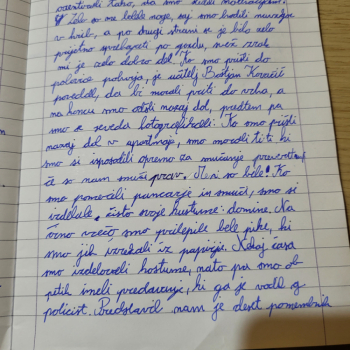 kako, da smo
Zelo so me bolele noge, saj smo hodili navzgor
v hrib, a po drugi strani se je bilo zelo
prijetno sprehajati po gozdu, svež zrak
mi je celo dobro del. Ko smo prišli do
polovice pohoda, je učitelj Boštjan
povedal, da bi morali priti do vrha, a
na koncu smo odšli nazaj dol, predtem pa
smo se seveda fotografirali. Ko smo prišli
nazaj dol v apartmaje, smo morali iti ki
smo si izposodili opremo za smučanje
če so nam smuči prav. Meni so bile! Ko
smo pomerili pancarje in smuči, smo si
izdelale čisto svoje kostume: domine. Na
črno vrečo smo prilepile bele pike, ki
smo jih izrezali iz papirja. Nekaj časa
smo izdelovali kostume, nato pa smo ob
petih imeli predavanje, ki ga je vodil g.
policist. Predstavil nam je deset pomembnih